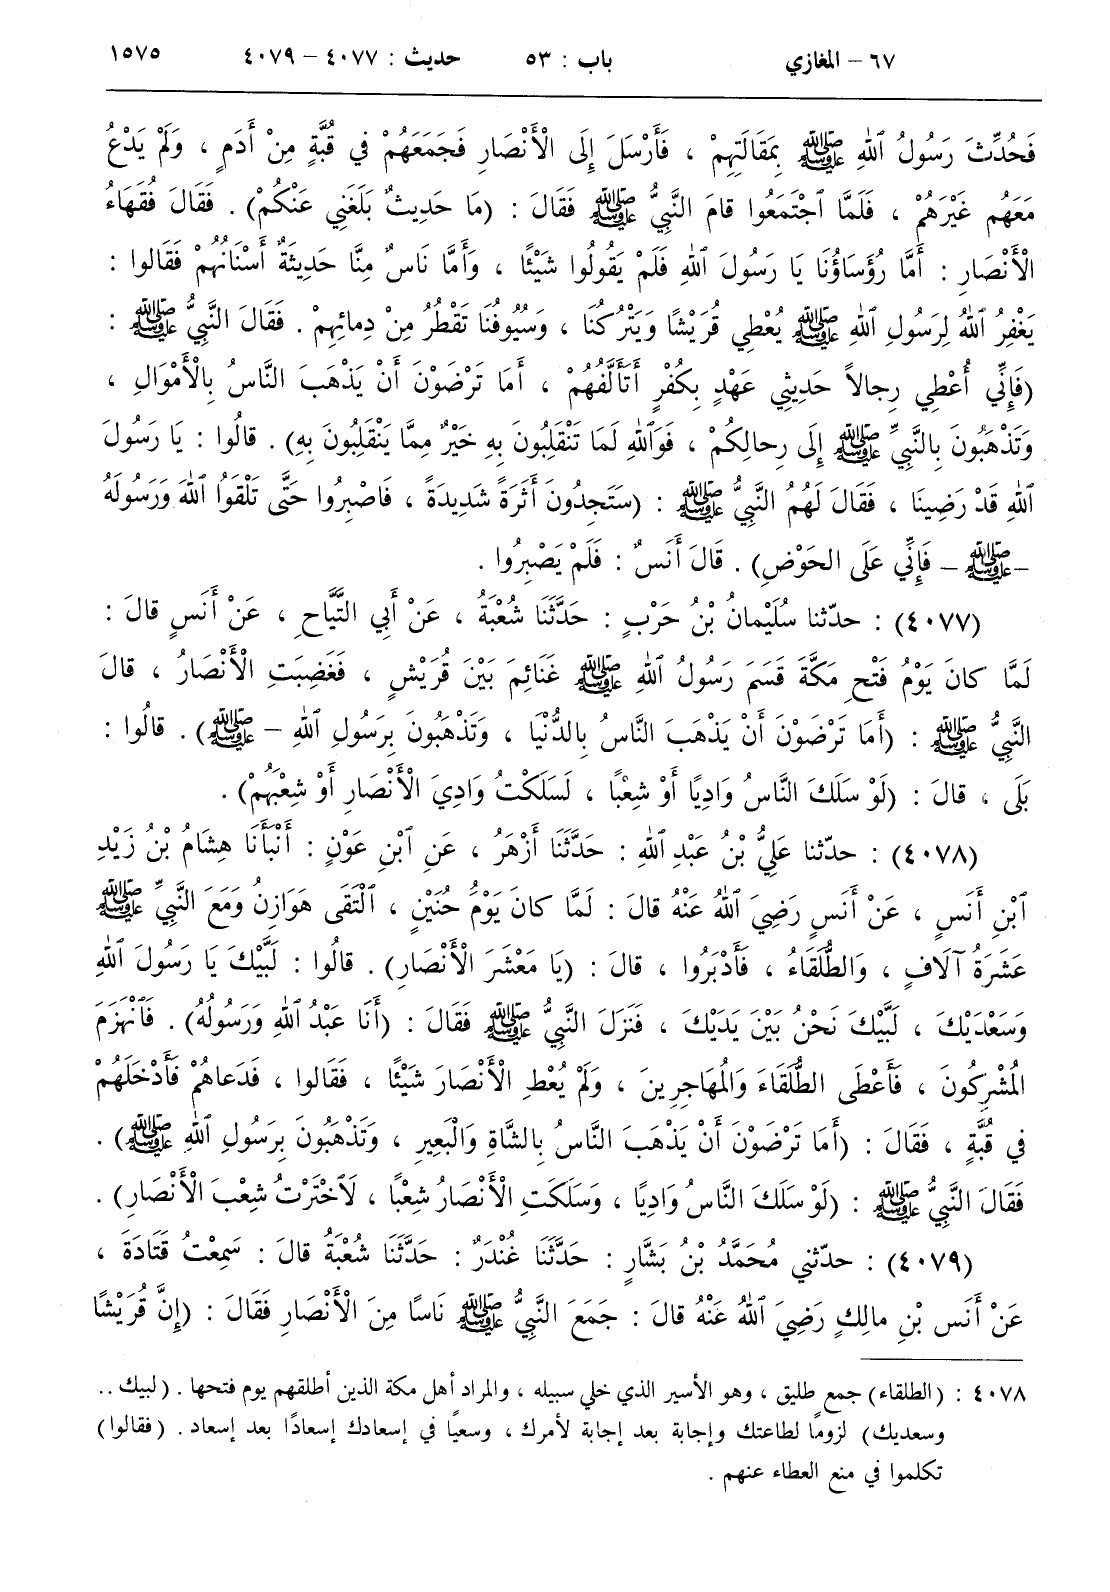 ٦٧ – المغازي باب : ٥٣ حديث : ٤٠٧٧ – ٤٠٧٩ ١٥٧٥
فَحُدِّثَ رَسُولُ ٱللهِ ﷺ بِمَقَالَتِهِمْ ، فَأَرْسَلَ إِلَى الْأَنْصَارِ فَجَمَعَهُمْ في قُبَّةٍ مِنْ أَدَمٍ ، وَلَمْ يَدْعُ
مَعَهُم غَيْرَهُمْ ، فَلَمَّا ٱجْتَمَعُوا قامَ النَّبِيُّ ﷺ فَقَالَ : (ما حَدِيثٌ بَلَغَنِي عَنْكُمْ) . فَقَالَ فُقَهَاءُ
الْأَنْصَارِ : أَمَّا رُؤَسَاؤُنَا يَا رَسُولَ ٱللهِ فَلَمْ يَقُولُوا شَيْئًا ، وَأَمَّا نَاسٌ مِنَّا حَدِيثَةٌ أَسْنَانُهُمْ فَقَالوا :
يَغْفِرُ ٱللهُ لِرَسُولِ ٱللهِ ﷺ يُعْطِي قُرَيْشًا وَيَتْرُكُنَا ، وَسُيُوفُنَا تَقْطُرُ مِنْ دِمائِهِمْ . فَقَالَ النَّبِيُّ ﷺ :
(فَإِنِّي أُعْطِي رِجالاً حَدِيثِي عَهْدٍ بِكُفْرٍ أَتَأَلَّفُهُمْ ، أَمَا تَرْضَوْنَ أَنْ يَذْهَبَ النَّاسُ بِالْأَمْوَالِ ،
وَتَذْهَبُونَ بِالنَّبِيِّ ﷺ إِلَى رِحالِكُمْ ، فَوَٱللهِ لَمَا تَنْقَلِبُونَ بِهِ خَيْرٌ مِمَّا يَنْقَلِبُونَ بِهِ) . قالُوا : يَا رَسُولَ
ٱللهِ قَدْ رَضِينَا ، فَقَالَ لَهُمُ النَّبِيُّ ﷺ : (سَتَجِدُونَ أَثَرَةً شَدِيدَةً ، فَاصْبِرُوا حَتَّى تَلْقَوُا ٱللهَ وَرَسُولَهُ
– ﷺ – فَإِنِّي عَلَى الحَوْضِ) . قَالَ أَنَسٌ : فَلَمْ يَصْبِرُوا .
(٤٠٧٧) : حدّثنا سُلَيْمانُ بْنُ حَرْبٍ : حَدَّثَنَا شُعْبَةُ ، عَنْ أَبِي التَّيَّاحِ ، عَنْ أَنَسٍ قالَ :
لَمَّا كانَ يَوْمُ فَتْحِ مَكَّةَ قَسَمَ رَسُولُ ٱللهِ ﷺ غَنَائِمَ بَيْنَ قُرَيْشٍ ، فَغَضِبَتِ الْأَنْصَارُ ، قالَ
النَّبِيُّ ﷺ : (أَمَا تَرْضَوْنَ أَنْ يَذْهَبَ النَّاسُ بِالدُّنْيَا ، وَتَذْهَبُونَ بِرَسُولِ ٱللهِ – ﷺ) . قالُوا :
بَلَى ، قالَ : (لَوْ سَلَكَ النَّاسُ وَادِيًا أَوْ شِعْبًا ، لَسَلَكْتُ وَادِيَ الْأَنْصَارِ أَوْ شِعْبَهُمْ) .
(٤٠٧٨) : حدّثنا عَلِيُّ بْنُ عَبْدِ ٱللهِ : حَدَّثَنَا أَزْهَرُ ، عَنِ ٱبْنِ عَوْنٍ : أَنْبَأَنَا هِشَامُ بْنُ زَيْدِ
ٱبْنِ أَنَسٍ ، عَنْ أَنَسٍ رَضِيَ ٱللهُ عَنْهُ قالَ : لَمَّا كانَ يَوْمُ حُنَيْنٍ ، ٱلْتَقَى هَوَازِنُ وَمَعَ النَّبِيِّ ﷺ
عَشَرَةُ آلَافٍ ، وَالطُّلَقَاءُ ، فَأَدْبَرُوا ، قالَ : (يَا مَعْشَرَ الْأَنْصَارِ) . قالُوا : لَبَّيْكَ يَا رَسُولَ ٱللهِ
وَسَعْدَيْكَ ، لَبَّيْكَ نَحْنُ بَيْنَ يَدَيْكَ ، فَنَزَلَ النَّبِيُّ ﷺ فَقَالَ : (أَنَا عَبْدُ ٱللهِ وَرَسُولُهُ) . فَٱنْهَزَمَ
المُشْرِكُونَ ، فَأَعْطَى الطُّلَقَاءَ وَالْمُهَاجِرِينَ ، وَلَمْ يُعْطِ الْأَنْصَارَ شَيْئًا ، فَقَالوا ، فَدَعاهُمْ فَأَدْخَلَهُمْ
في قُبَّةٍ ، فَقَالَ : (أَمَا تَرْضَوْنَ أَنْ يَذْهَبَ النَّاسُ بِالشَّاةِ وَالْبَعِيرِ ، وَتَذْهَبُونَ بِرَسُولِ ٱللهِ ﷺ) .
فَقَالَ النَّبِيُّ ﷺ : (لَوْ سَلَكَ النَّاسُ وَادِيًا ، وَسَلَكَتِ الْأَنْصَارُ شِعْبًا ، لَٱخْتَرْتُ شِعْبَ الْأَنْصَارِ) .
(٤٠٧٩) : حدّثني مُحَمَّدُ بْنُ بَشَّارٍ : حَدَّثَنَا غُنْدَرٌ : حَدَّثَنَا شُعْبَةُ قالَ : سَمِعْتُ قَتَادَةَ ،
عَنْ أَنَسِ بْنِ مالِكٍ رَضِيَ ٱللهُ عَنْهُ قالَ : جَمَعَ النَّبِيُّ ﷺ نَاسًا مِنَ الْأَنْصَارِ فَقَالَ : (إِنَّ قُرَيْشًا
٤٠٧٨ : (الطلقاء) جمع طليق ، وهو الأسير الذي خلي سبيله ، والمراد أهل مكة الذين أطلقهم يوم فتحها . (لبيك ..
وسعديك) لزومًا لطاعتك وإجابة بعد إجابة لأمرك ، وسعيًا في إسعادك إسعادًا بعد إسعاد . (فقالوا)
تكلموا في منع العطاء عنهم .